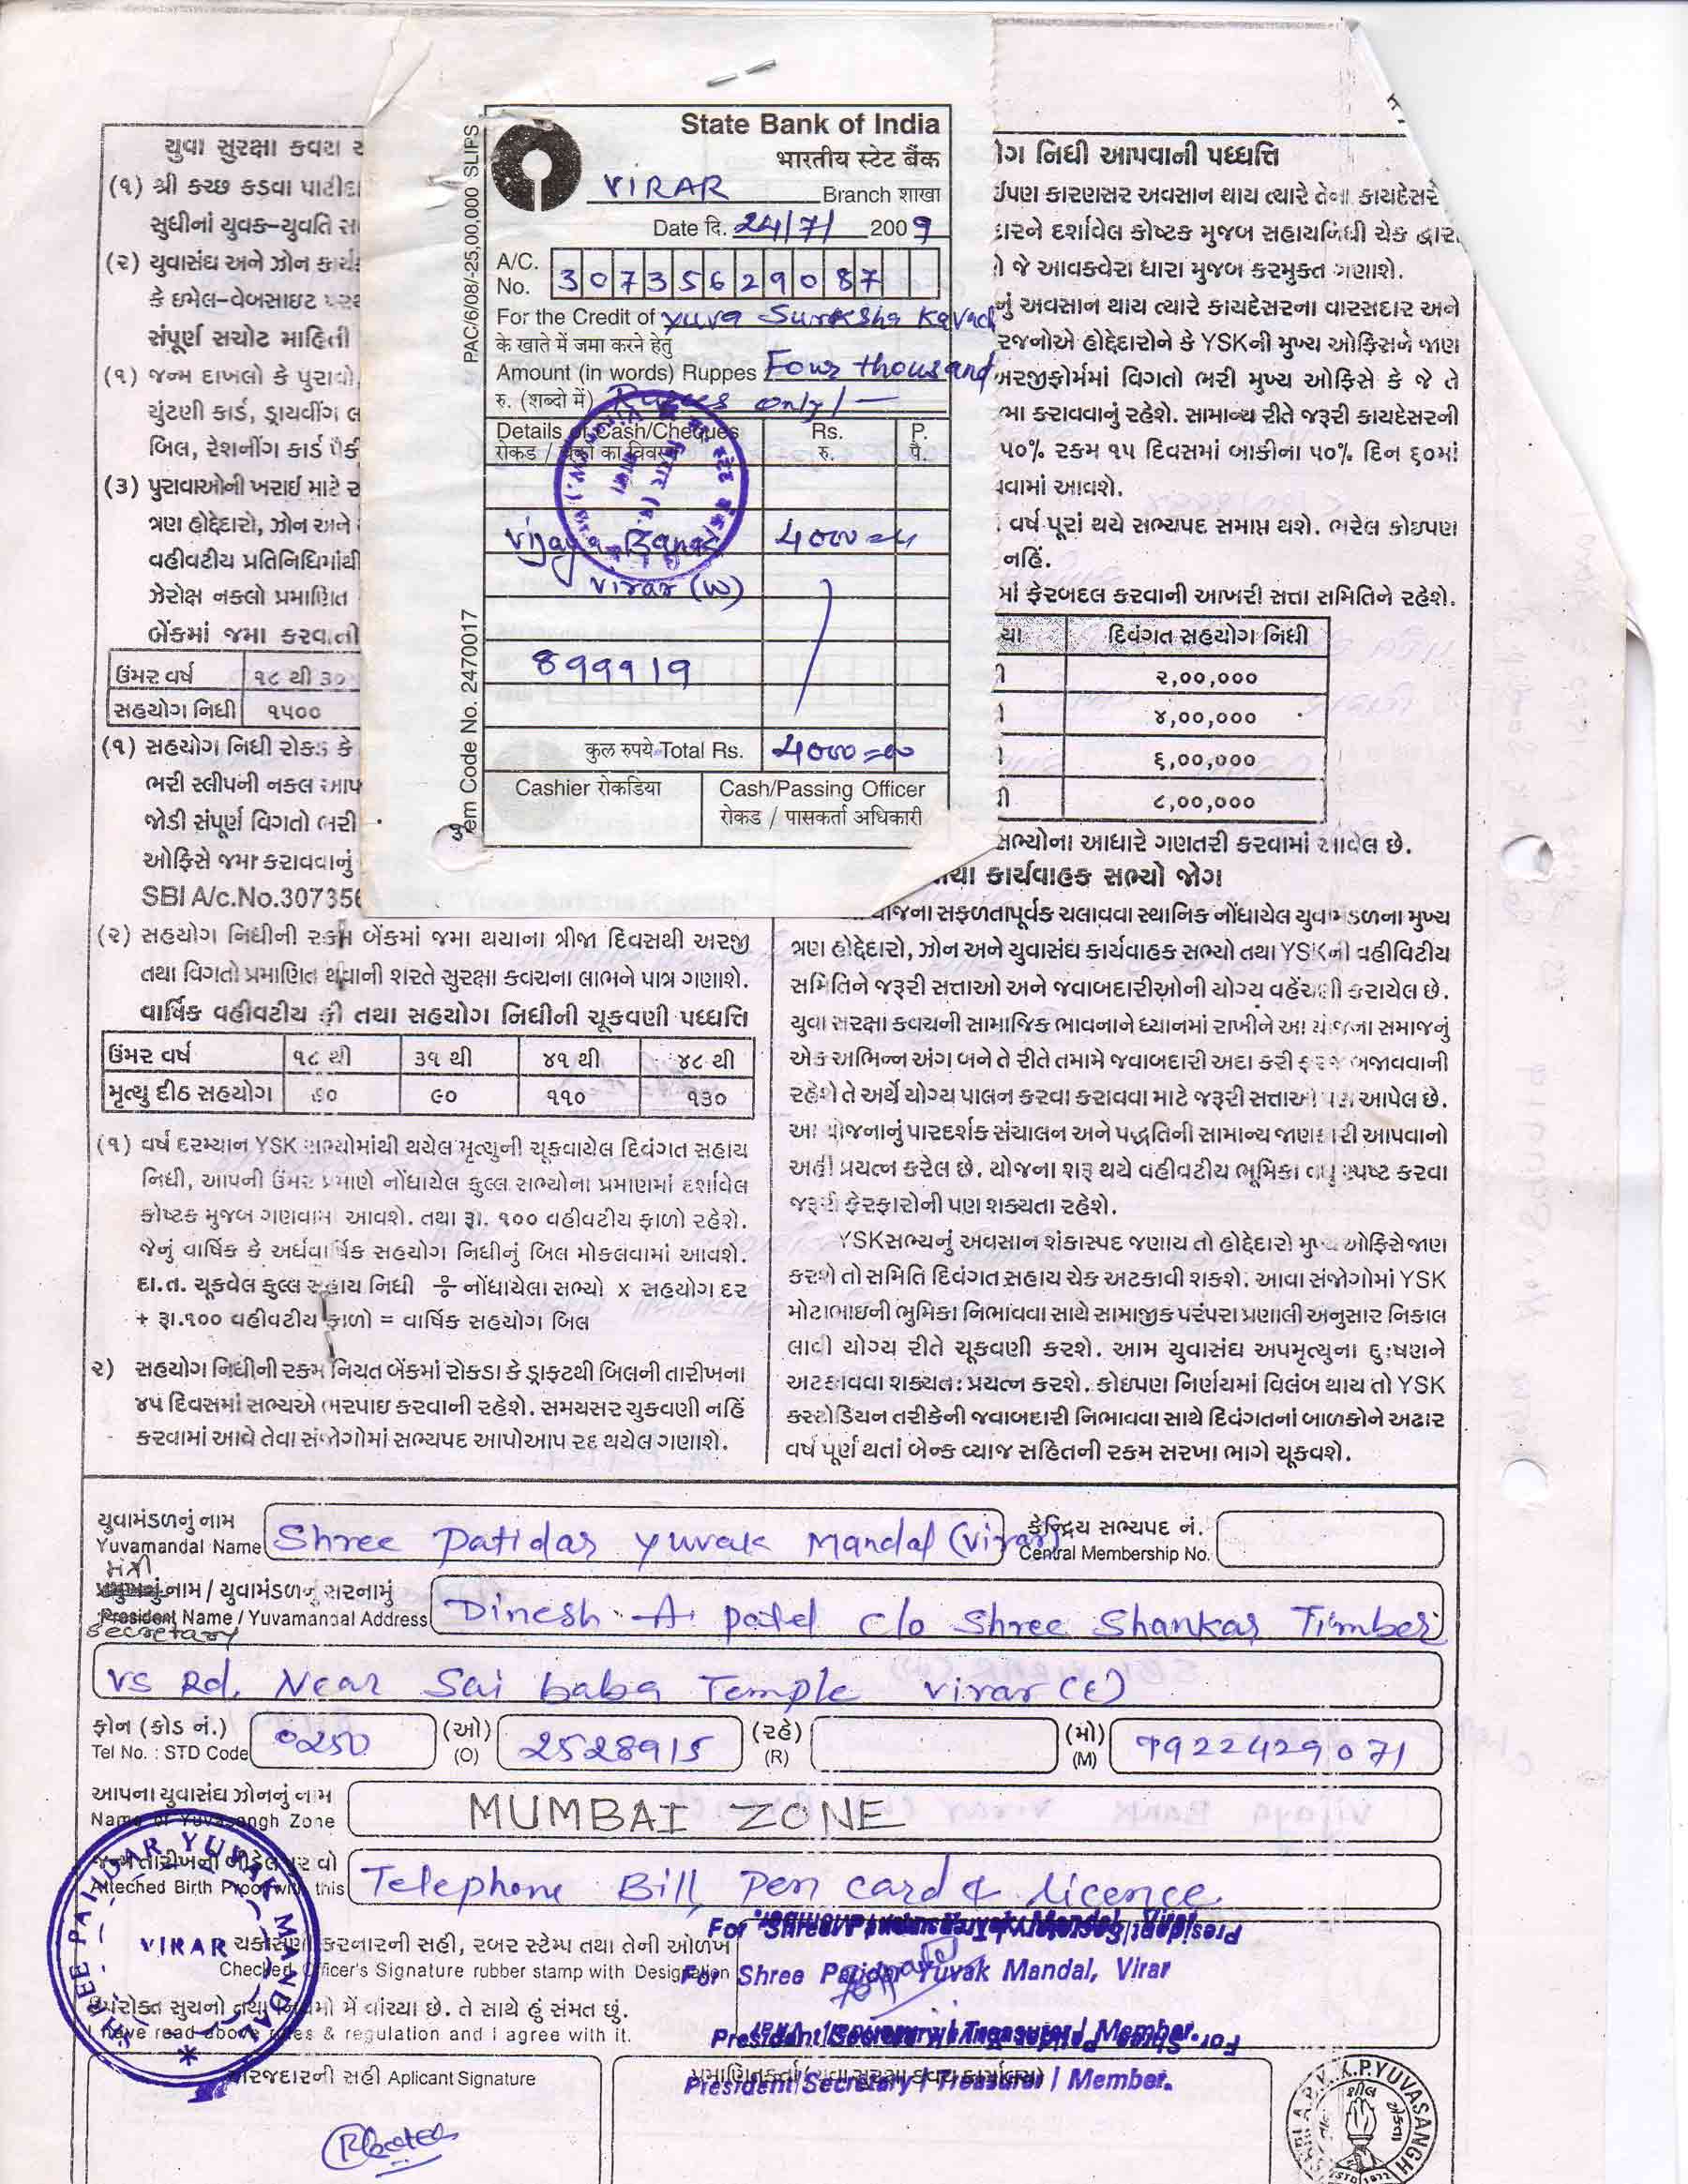 State Bank of India
भारतीय स्टेट बैंक
VIRAR Branch शाखा
Date दि. 24/7/ 2009
A/C. No. 30735629087
For the Credit of Yuva Suraksha Kavach
के खाते में जमा करने हेतु
Amount (in words) Ruppes Four thousand
रु. (शब्दो में) Rupees only/-
Details of Cash/Cheques Rs. P.
रोकड / चेकों का विवरण रु. पै.
Vijaya Bank 4000=00
Virar (W)
899919
कुल रुपये Total Rs. 4000=00
Cashier रोकडिया Cash/Passing Officer
रोकड / पासकर्ता अधिकारी
PAC/6/08-25,00,000 SLIPS
Item Code No. 2470017
યુવા સુરક્ષા કવચ
(૧) શ્રી કચ્છ કડવા પાટીદા
સુધીનાં યુવક-યુવતિ
(૨) યુવાસંઘ અને ઝોન
કે ઇમેલ-વેબસાઇટ
સંપૂર્ણ સચોટ માહિતી
(૧) જન્મ દાખલો કે પુરાવો
ચુંટણી કાર્ડ, ડ્રાયવીંગ લ
બિલ, રેશનીંગ કાર્ડ પૈકી
(૩) પુરાવાઓની ખરાઈ માટે
ત્રણ હોદ્દેદારો, ઝોન અને
વહીવટીય પ્રતિનિધિમાંથી
ઝેરોક્ષ નકલો પ્રમાણિત
બેંકમાં જમા કરવાની
ઉંમર વર્ષ ૧૮ થી ૩૦
સહયોગ નિધી ૧૫૦૦
(૧) સહયોગ નિધી રોકડ કે
ભરી સ્લીપની નકલ આપ
જોડી સંપૂર્ણ વિગતો ભરી
ઓફિસે જમા કરાવવાનું
SBI A/c.No.307356
(૨) સહયોગ નિધીની રકમ બેંકમાં જમા થયાના ત્રીજા દિવસથી અરજી
તથા વિગતો પ્રમાણિત થવાની શરતે સુરક્ષા કવચના લાભને પાત્ર ગણાશે.
વાર્ષિક વહીવટીય ફી તથા સહયોગ નિધીની ચૂકવણી પધ્ધતિ
ઉંમર વર્ષ ૧૮ થી ૩૧ થી ૪૧ થી ૪૮ થી
મૃત્યુ દીઠ સહયોગ ૯૦ ૧૧૦ ૧૩૦
(૧) વર્ષ દરમ્યાન YSK સભ્યોમાંથી થયેલ મૃત્યુની ચૂકવાયેલ દિવંગત સહાય
નિધી, આપની ઉંમર પ્રમાણે નોંધાયેલ કુલ્લ સભ્યોના પ્રમાણમાં દર્શાવેલ
કોષ્ટક મુજબ ગણવામાં આવશે. તથા રૂા. ૧૦૦ વહીવટીય ફાળો રહેશે.
જેનું વાર્ષિક કે અર્ધવાર્ષિક સહયોગ નિધીનું બિલ મોકલવામાં આવશે.
દા.ત. ચૂકવેલ કુલ્લ સહાય નિધી ÷ નોંધાયેલા સભ્યો x સહયોગ દર
+ રૂા.૧૦૦ વહીવટીય ફાળો = વાર્ષિક સહયોગ બિલ
૨) સહયોગ નિધીની રકમ નિયત બેંકમાં રોકડા કે ડ્રાફટથી બિલની તારીખના
૪૫ દિવસમાં સભ્યએ ભરપાઇ કરવાની રહેશે. સમયસર ચુકવણી નહિં
કરવામાં આવે તેવા સંજોગોમાં સભ્યપદ આપોઆપ રદ થયેલ ગણાશે.
ોગ નિધી આપવાની પધ્ધત્તિ
ઈપણ કારણસર અવસાન થાય ત્યારે તેના કાયદેસરે
દારને દર્શાવેલ કોષ્ટક મુજબ સહાયનિધી ચેક દ્વારા
જે આવકવેરા ધારા મુજબ કરમુક્ત ગણાશે.
નું અવસાન થાય ત્યારે કાયદેસરના વારસદાર અને
રજનોએ હોદ્દેદારોને કે YSKની મુખ્ય ઓફિસને જાણ
અરજીફોર્મમાં વિગતો ભરી મુખ્ય ઓફિસે કે જે તે
મા કરાવવાનું રહેશે. સામાન્ય રીતે જરૂરી કાયદેસરની
૫૦% રકમ ૧૫ દિવસમાં બાકીના ૫૦% દિન ૬૦માં
વામાં આવશે.
વર્ષ પૂરાં થયે સભ્યપદ સમાપ્ત થશે. ભરેલ કોઇપણ
નહિં.
માં ફેરબદલ કરવાની આખરી સત્તા સમિતિને રહેશે.
યા દિવંગત સહયોગ નિધી
૨,૦૦,૦૦૦
૪,૦૦,૦૦૦
૬,૦૦,૦૦૦
૮,૦૦,૦૦૦
સભ્યોના આધારે ગણતરી કરવામાં આવેલ છે.
કાર્યવાહક સભ્યો જોગ
યોજના સફળતાપૂર્વક ચલાવવા સ્થાનિક નોંધાયેલ યુવામંડળના મુખ્ય
ત્રણ હોદ્દેદારો, ઝોન અને યુવાસંઘ કાર્યવાહક સભ્યો તથા YSKની વહીવિટીય
સમિતિને જરૂરી સત્તાઓ અને જવાબદારીઓની યોગ્ય વહેંચણી કરાયેલ છે.
યુવા સરક્ષા કવચની સામાજિક ભાવનાને ધ્યાનમાં રાખીને આ યોજના સમાજનું
એક અભિન્ન અંગ બને તે રીતે તમામે જવાબદારી અદા કરી ફરજ બજાવવાની
રહેશે તે અર્થે યોગ્ય પાલન કરવા કરાવવા માટે જરૂરી સત્તાઓ પણ આપેલ છે.
આ યોજનાનું પારદર્શક સંચાલન અને પદ્ધતિની સામાન્ય જાણકારી આપવાનો
અહીં પ્રયત્ન કરેલ છે. યોજના શરૂ થયે વહીવટીય ભૂમિકા વધુ સ્પષ્ટ કરવા
જરૂરી ફેરફારોની પણ શક્યતા રહેશે.
YSKસભ્યનું અવસાન શંકાસ્પદ જણાય તો હોદ્દેદારો મુખ્ય ઓફિસે જાણ
કરશે તો સમિતિ દિવંગત સહાય ચેક અટકાવી શકશે. આવા સંજોગોમાં YSK
મોટાભાઇની ભુમિકા નિભાવવા સાથે સામાજીક પરંપરા પ્રણાલી અનુસાર નિકાલ
લાવી યોગ્ય રીતે ચૂકવણી કરશે. આમ યુવાસંઘ અપમૃત્યુના દુઃષણને
અટકાવવા શક્યતઃ પ્રયત્ન કરશે. કોઇપણ નિર્ણયમાં વિલંબ થાય તો YSK
કસ્ટોડિયન તરીકેની જવાબદારી નિભાવવા સાથે દિવંગતનાં બાળકોને અઢાર
વર્ષ પૂર્ણ થતાં બેન્ક વ્યાજ સહિતની રકમ સરખા ભાગે ચૂકવશે.
યુવામંડળનું નામ કેન્દ્રિય સભ્યપદ નં.
Yuvamandal Name Shree Patidar Yuvak Mandal (Virar) Central Membership No.
મંત્રી
પ્રમુખનું નામ / યુવામંડળનું સરનામું
President Name / Yuvamandal Address Dinesh A patel c/o Shree Shankar Timber
Secretary
VS Rd. Near Sai baba Temple Virar (E)
ફોન (કોડ નં.) (ઓ) (રહે) (મો)
Tel No. : STD Code 0250 (O) 2528915 (R) (M) 9922429071
આપના યુવાસંઘ ઝોનનું નામ
Name of Yuvasangh Zone MUMBAI ZONE
Atteched Birth Proof with this Telephone Bill, Pen card & Licence.
ચકાસણી કરનારની સહી, રબર સ્ટેમ્પ તથા તેની ઓળખ
Checked Officer's Signature rubber stamp with Designation
For Shree Patidar Yuvak Mandal, Virar
ઉપરોક્ત સુચનો તથા નિયમો મેં વાંચ્યા છે. તે સાથે હું સંમત છું.
I have read above rules & regulation and I agree with it.
President/Secretary/Treasurer/Member.
અરજદારની સહી Aplicant Signature
President/Secretary/Treasurer/Member.
SHREE PATIDAR YUVAK MANDAL
VIRAR
K.P.YUVASANGH